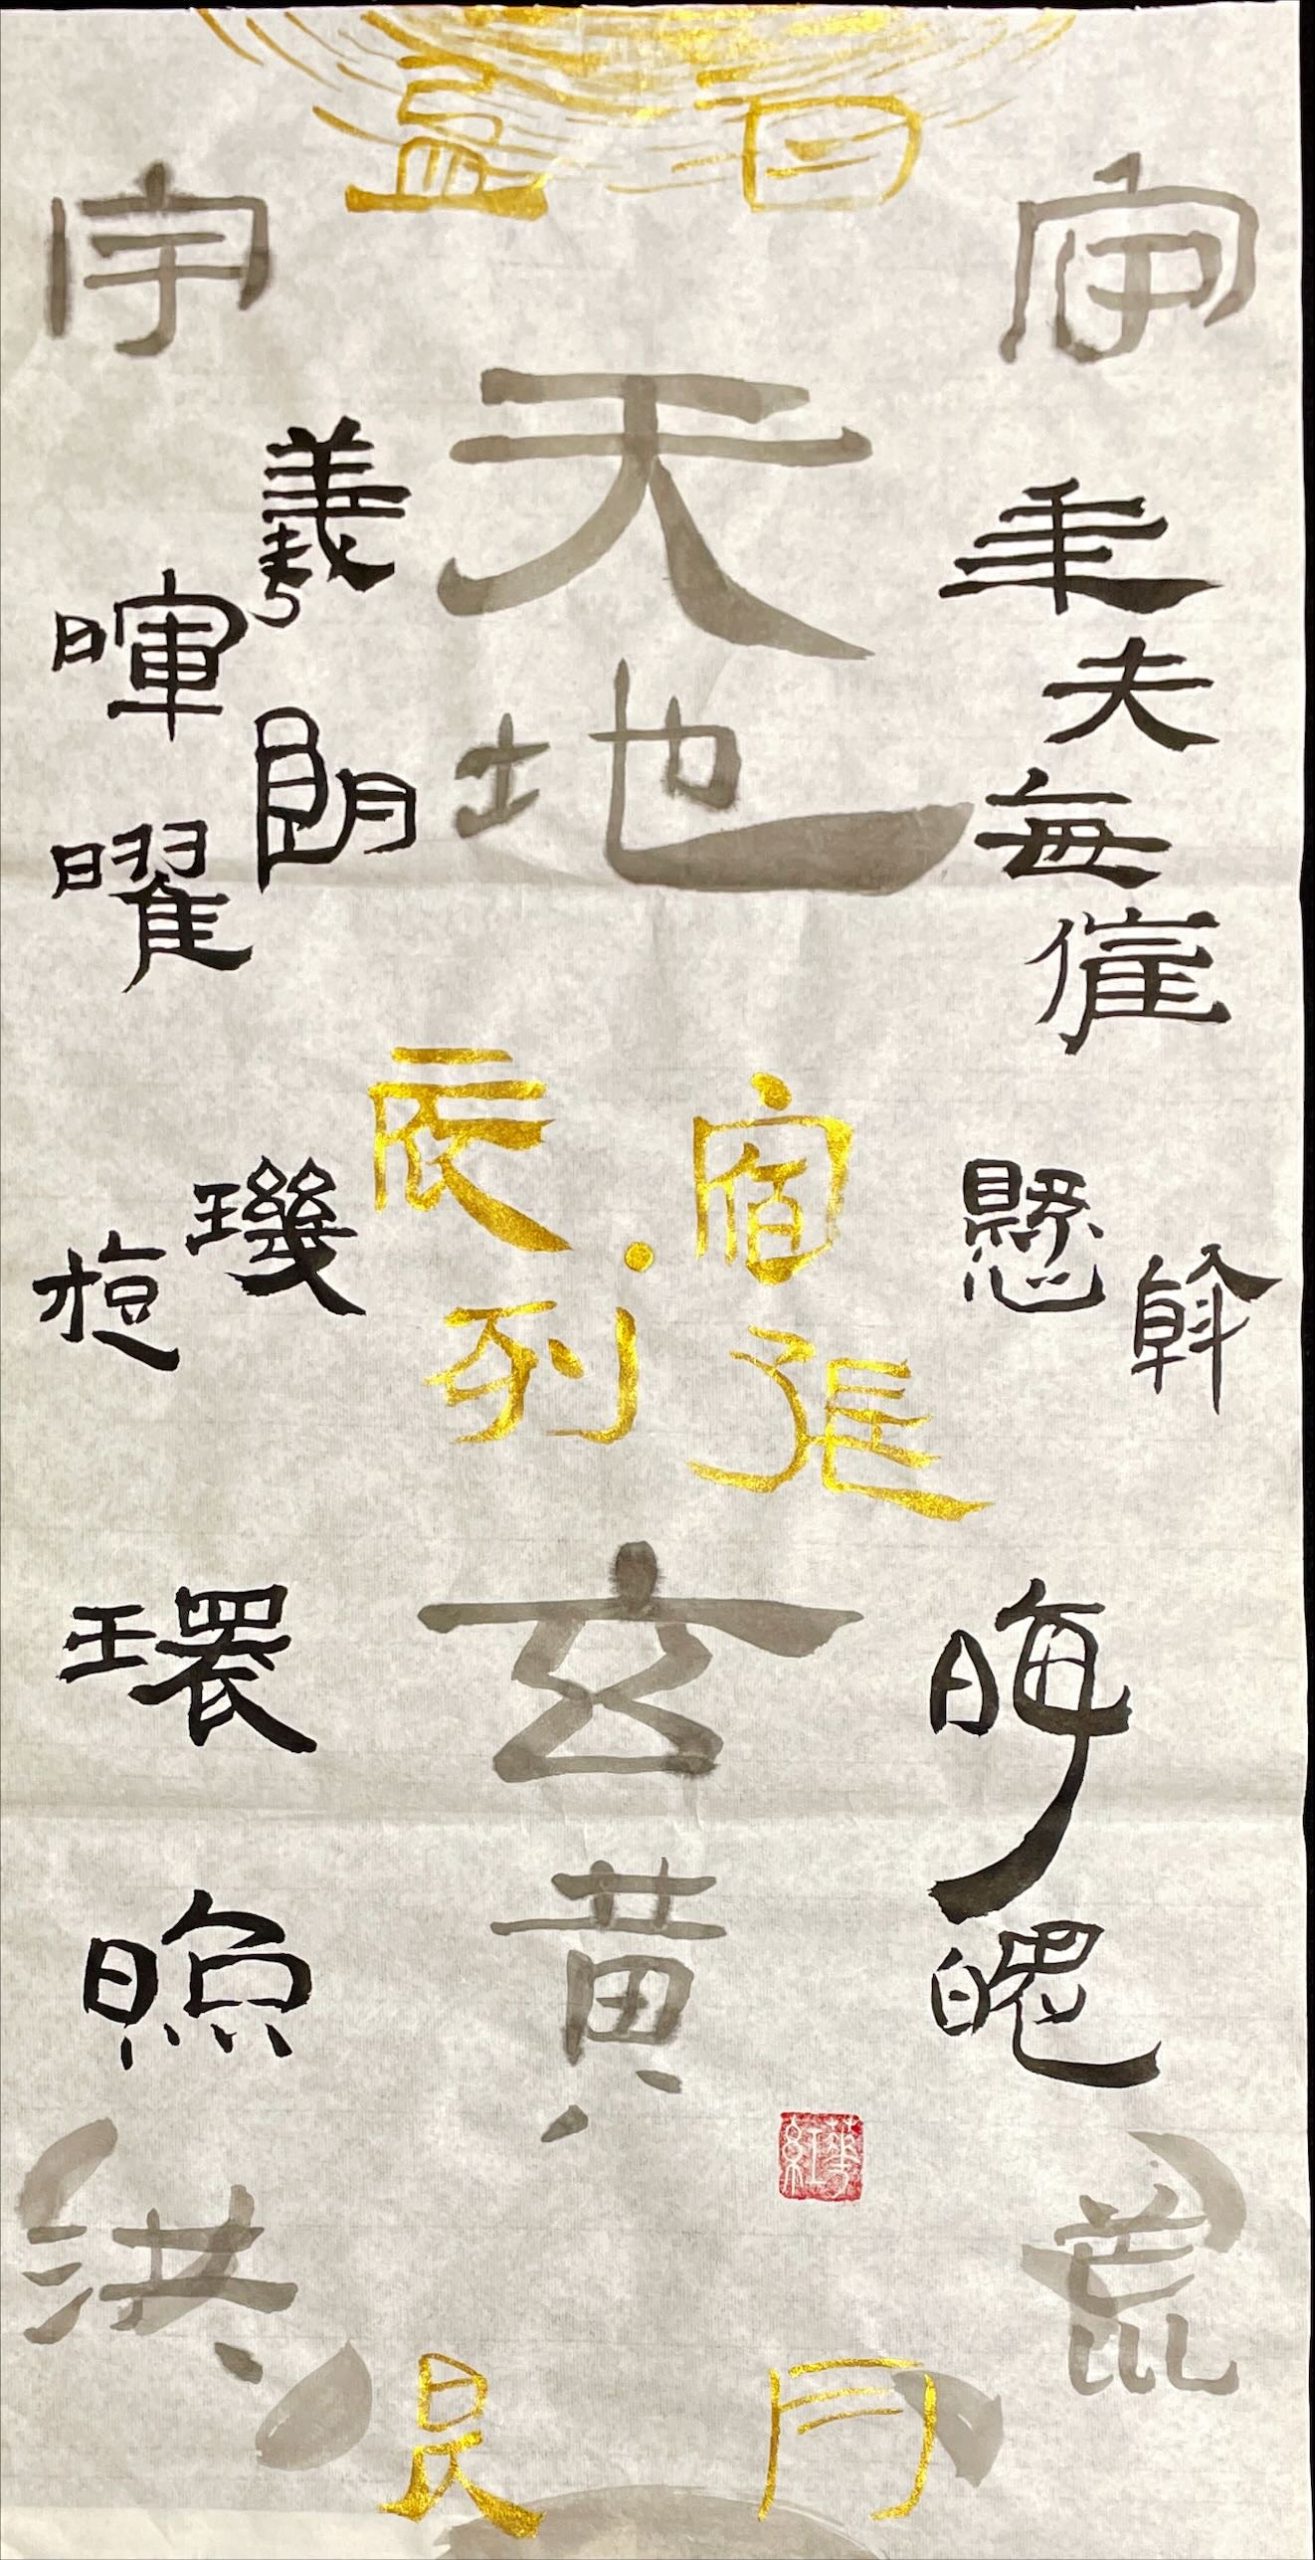 天地
玄黄
宇宙
洪荒
日月
盈昃
辰宿
列張
年矢每催
羲暉朗曜
旋璣
懸斡
晦魄
環照